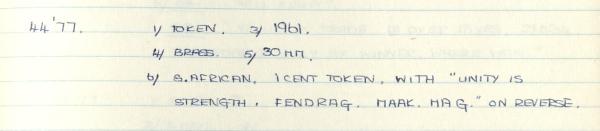 44'77. 1/ TOKEN. 3/ 1961.
4/ BRASS. 5/ 30MM.
6/ S.AFRICAN, 1 CENT TOKEN, WITH "UNITY IS
STRENGTH, FENDRAG. MAAK. MAG." ON REVERSE.